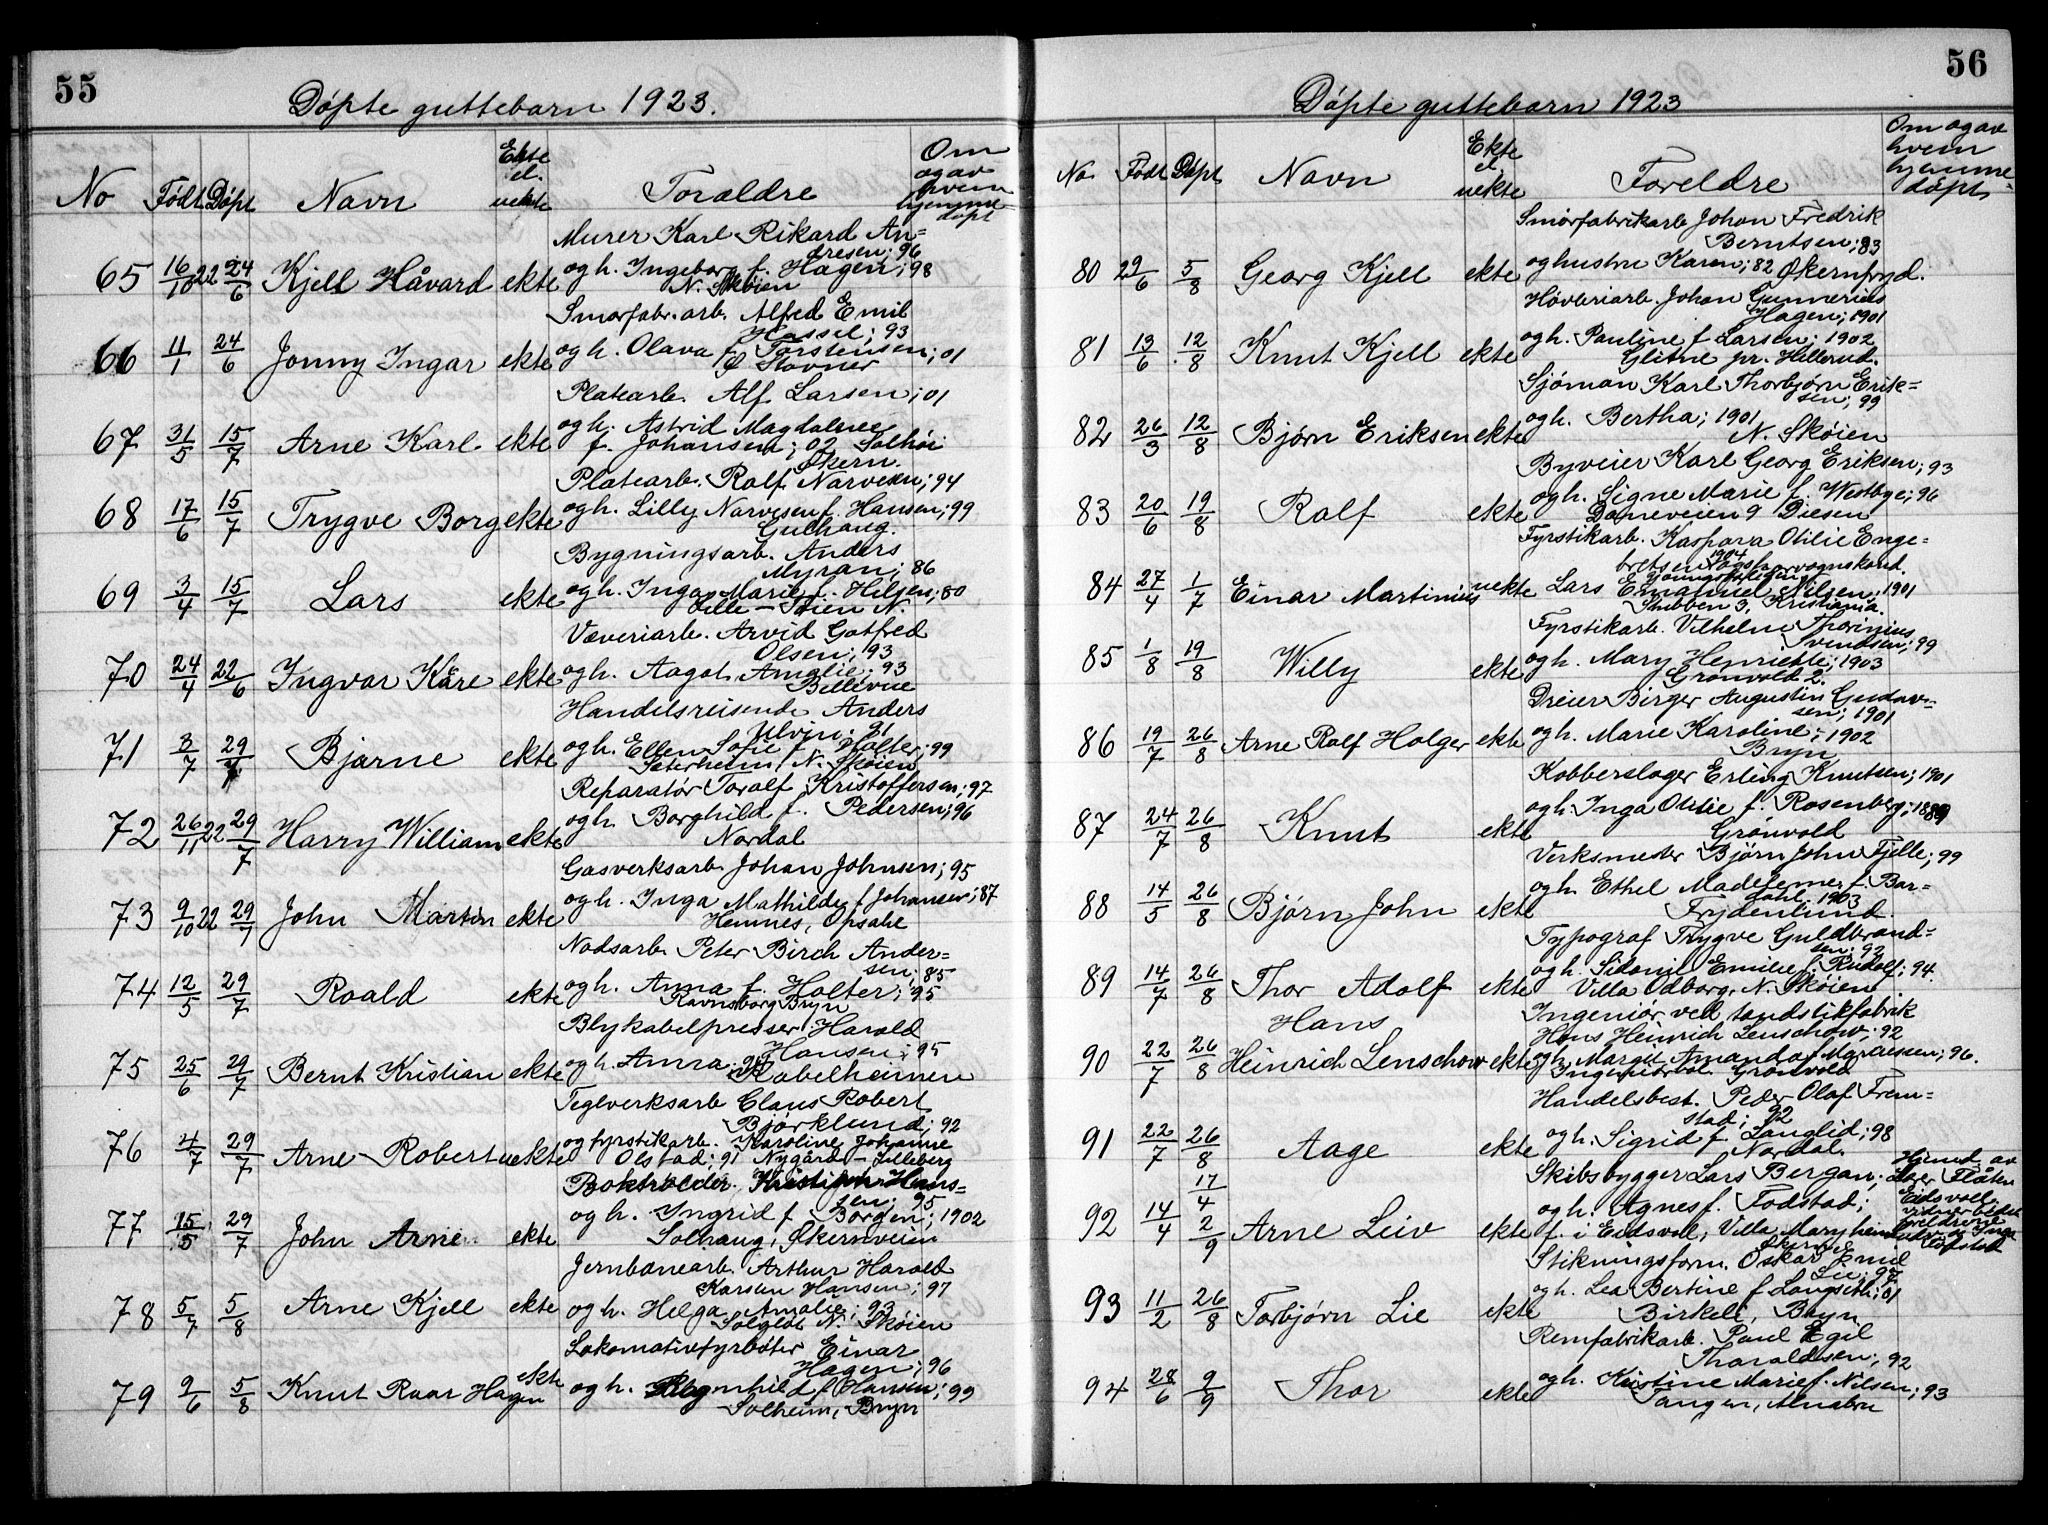 55
Døpte guttebarn 1923.
No Født Døpt Navn Ekte el. uekte Foreldre Om og av hvem hjemmedøpt
Murer Karl Rikard An=
dresen; 96
65 16/10 22 24/6 Kjell Håvard ekte og h. Ingeborg f. Hagen; 98
N. Skøien
Smørfabr. arb. Alfred Emil
Hassel; 93
66 11/1 24/6 Jonny Ingar ekte og h. Olava f. Torstensen; 01
Ø Stovner
Platearb. Alf Larsen; 01
67 31/5 15/7 Arne Karl ekte og h. Astrid Magdalene
f. Johansen; 02 Solhøi
Økern.
Platearb. Rolf Narvesen; 94
68 17/6 15/7 Trygve Borg ekte og h. Lilly Narvesen f. Hansen; 99
Gulhaug.
Bygningsarb. Anders
Myran; 86
69 3/4 15/7 Lars ekte og h. Inga Marie f. Hilsen; 80
Lille-Stien N.
Væveriarb. Arvid Gotfred
Olsen; 93
70 24/4 22/6 Ingvar Kåre ekte og h. Aagot Amalie; 93
Bellevue
Handelsreisende Anders
Ulvin; 91
71 3/7 29/7 Bjarne ekte og h. Ellen Sofie f. Holter; 99
Sæterheim N. Skøien
Reparatør Toralf Kristoffersen; 97
72 26/11 22 29/7 Harry William ekte og h. Borghild f. Pedersen; 96
Nordal
Gasverksarb. Johan Johnsen; 95
73 9/10 22 29/7 John Martin ekte og h. Inga Mathilde f Johansen; 87
Hemnes, Opsahl
Nodsarb. Peter Birch Ander=
sen; 85
74 12/5 29/7 Roald ekte og h. Anna f. Holter; 95
Ravnsborg Bryn
Blykabelpresser Harald
Hansen; 95
75 25/6 29/7 Bernt Kristian ekte og h. Anna; 94
Kabelheimen
Teglverksarb Claus Robert
Bjørklund; 92
76 4/7 29/7 Arne Robert uekte og fyrstikarb. Karoline Johanne
Olstad; 91 Nygård - Lilleberg
Bokholder Kristian Hans=
sen; 95
77 15/5 29/7 John Arne ekte og h. Ingrid f Borgen; 1902
Solhaug, Økernveien
Jernbanearb. Arthur Harald
Karsten Hansen; 97
78 5/7 5/8 Arne Kjell ekte og h. Helga Amalie; 93
Solgløt N. Skøien
Lokomotivfyrbøter Einar
Hagen; 96
79 9/6 5/8 Knut Roar Hagen ekte og h. Ragnhild f Hansen; 99
Solheim, Bryn
56
Døpte guttebarn 1923
No Født Døpt Navn Ekte el. uekte Foreldre Om og av hvem hjemmedøpt
Smørfabrikarb Johan Fredrik
Berntsen; 83
80 29/6 5/8 Georg Kjell ekte og hustru Karen; 82 Økernfryd.
Høvleriarb. Johan Gunnerius
Hagen; 1901
81 13/6 12/8 Knut Kjell ekte og h. Pauline f Larsen; 1902
Glitne pr. Hellerud.
Sjøman Karl Thorbjørn Erik=
sen; 99
82 26/3 12/8 Bjørn Eriksen ekte og h. Bertha; 1901
N. Skøien
Byveier Karl Georg Eriksen; 93
83 20/6 19/8 Rolf ekte og h. Signe Marie f. Westbye; 96
Doneveien 9 Diesen
Fyrstikarb. Kaspara Otilie Enge=
bretsen 1904
84 27/4 1/7 Einar Martinius uekte Lars Emanuel Nilsen, 1901
Stubben 3, Kristiania.
Fyrstikarb. Vilhelm Thorinius
Svendsen; 99
85 1/8 19/8 Willy ekte og h. Mary Henriette; 1903
Grønvold 2.
Dreier Birger Augustin Gustav=
sen; 1901
86 19/7 26/8 Arne Rolf Holger ekte og h. Marie Karoline; 1902
Bryn
Kobberslager Erling Knutsen; 1901
87 24/7 26/8 Knut ekte og h. Inga Otilie f. Rosenberg; 1899
Grønvold
Verksmester Bjørn John Fjelle; 99
88 14/5 26/8 Bjørn John ekte og h. Ethel Madeleine f. Bar=
dahl. 1903
Frydenlund.
Typograf Trygve Guldbrand=
sen; 92
89 14/7 26/8 Thor Adolf ekte og h. Sidonie Emilie f. Rudolf; 94.
Villa Odborg, N. Skøien
Ingeniør ved tandstikfabrik
Hans Heinrich Lenschow; 92
90 22/7 26/8 Hans Heinrich Lenschow ekte og h. Margit Amanda f Magnussen; 96.
Ingeniørbol. Grønvold
Handelsbest. Peder Olaf Frem=
stad; 92
91 22/7 26/8 Aage ekte og h. Sigrid f Langlid; 98
Nordal.
Skibsbygger Lars Bergan;
92 14/4 17/4 2/9 Arne Leiv ekte og h. Agnes f. Fodstad;
f. i Eidsvol, Villa Maryheim
Økern
Hjemd. av
Lars Flåten
Eidsvoll.
Stikningsform. Oskar Emil
Lie; 97
93 11/2 26/8 Torbjørn Lie ekte og h. Lea Bertine f Langseth; 01
Birkeli, Bryn
Remfabrikarb. Paul Egil
Tharaldsen; 92
94 28/6 9/9 Thor ekte og h. Kristine Marie f. Nilsen; 93
Tangen, Alnabru